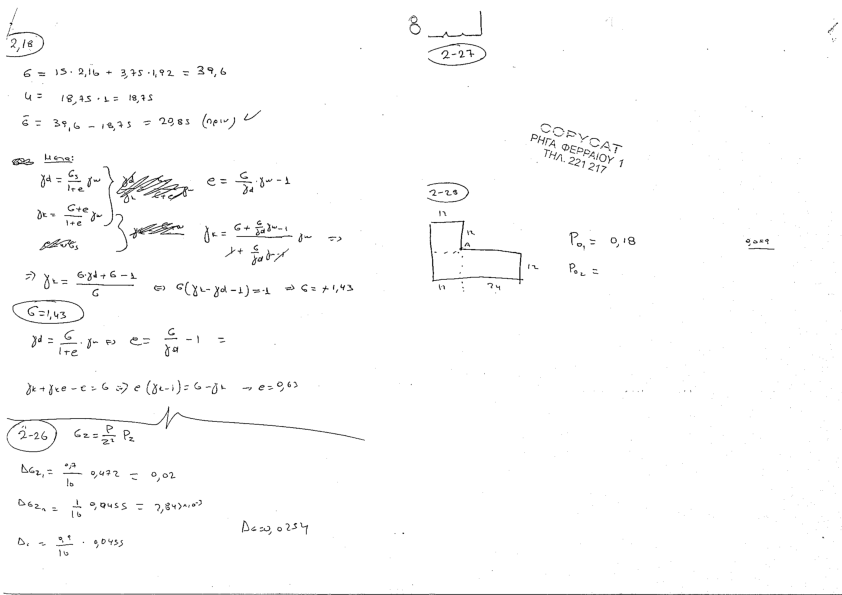 2,18
σ = 15 · 2,16 + 3,75 · 1,92 = 39,6
u = 18,75 · 1 = 18,75
σ̄ = 39,6 - 18,75 = 20,85 (πριν) ✓
Μετα:
γd = Gs/1+e γw
e = G/γd · γw - 1
γk = G+e/1+e γw
γk = G + G/γd γw - 1 / 1 + G/γd γw - 1 γw ⇒
⇒ γk = G·γd + G - 1 / G ⇔ G(γk - γd - 1) = -1 ⇒ G = +1,43
G = 1,43
γd = G/1+e · γw ⇔ e = G/γd - 1 =
γk + γk e - e = G ⇒ e (γk - 1) = G - γk → e = 0,63
2-26 σz = P/z² Pz
Δσz₁ = 0,7/16 0,472 = 0,02
= 1/16 0,0455 =
= 0,9/16 · 0,0455
Δσ = 0,0254
8
2-27
COPYCAT
ΡΗΓΑ ΦΕΡΡΑΙΟΥ 1
ΤΗΛ. 221 217
2-28
12
12
A
12
12
24
Po₁ = 0,18
Po₂ =